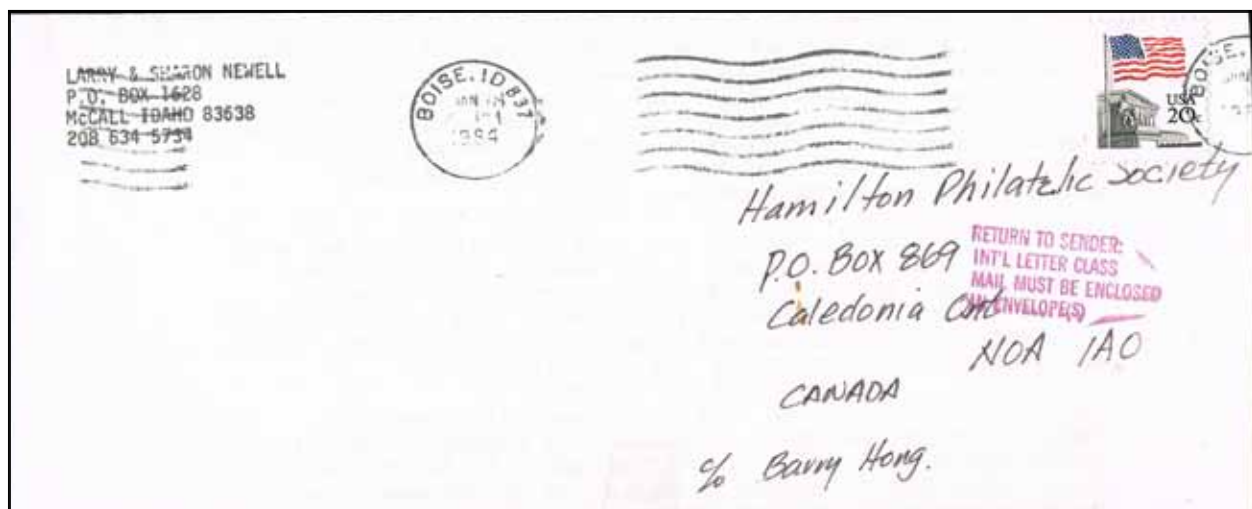 LARRY & SHARON NEWELL
P.O. BOX 1628
McCALL IDAHO 83638
208 634 5734
BOISE, ID 837
1984
USA
20c
BOISE,
Hamilton Philatelic Society
P.O. BOX 869
Caledonia Ont
N0A 1A0
CANADA
c/o Barry Hong.
RETURN TO SENDER:
INT'L LETTER CLASS
MAIL MUST BE ENCLOSED
IN ENVELOPE(S)